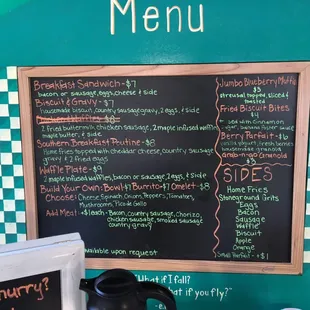 Menu
Breakfast Sandwich - $7
bacon or sausage, eggs, cheese + side
Biscuit & Gravy - $7
housemade biscuit, country sausage gravy, 2 eggs, + side
Chicken & Waffles - $8
2 fried buttermilk chicken, sausage, 2 maple infused waffles
maple butter, + side
Southern Breakfast Poutine - $8
home fries topped with cheddar cheese, country sausage
gravy + 2 fried eggs
Waffle Plate - $9
2 maple infused waffles, bacon or sausage, 2 eggs, + side
Build Your Own: Bowl-$7 Burrito-$7 Omelet-$8
Choose: Cheese, Spinach, Onions, Peppers, Tomatoes,
Mushrooms, Pico de Gallo
Add Meat: +$1 each - Bacon, country sausage, Chorizo,
Chicken sausage, smoked sausage
country gravy
available upon request
Jumbo Blueberry Muffin
$3
streusal topped, sliced +
toasted
Fried Biscuit Bites
$4
tossed with cinnamon
Berry Parfait - $6
vanilla yogurt, fresh berries
housemade granola
Grab-n-go Granola
$3
SIDES
Home Fries
Stoneground Grits
Eggs
Bacon
Sausage
Waffle
Biscuit
Apple
Orange
Small Parfait - +$1
hurry?
"What if I fall?
what if you fly?"